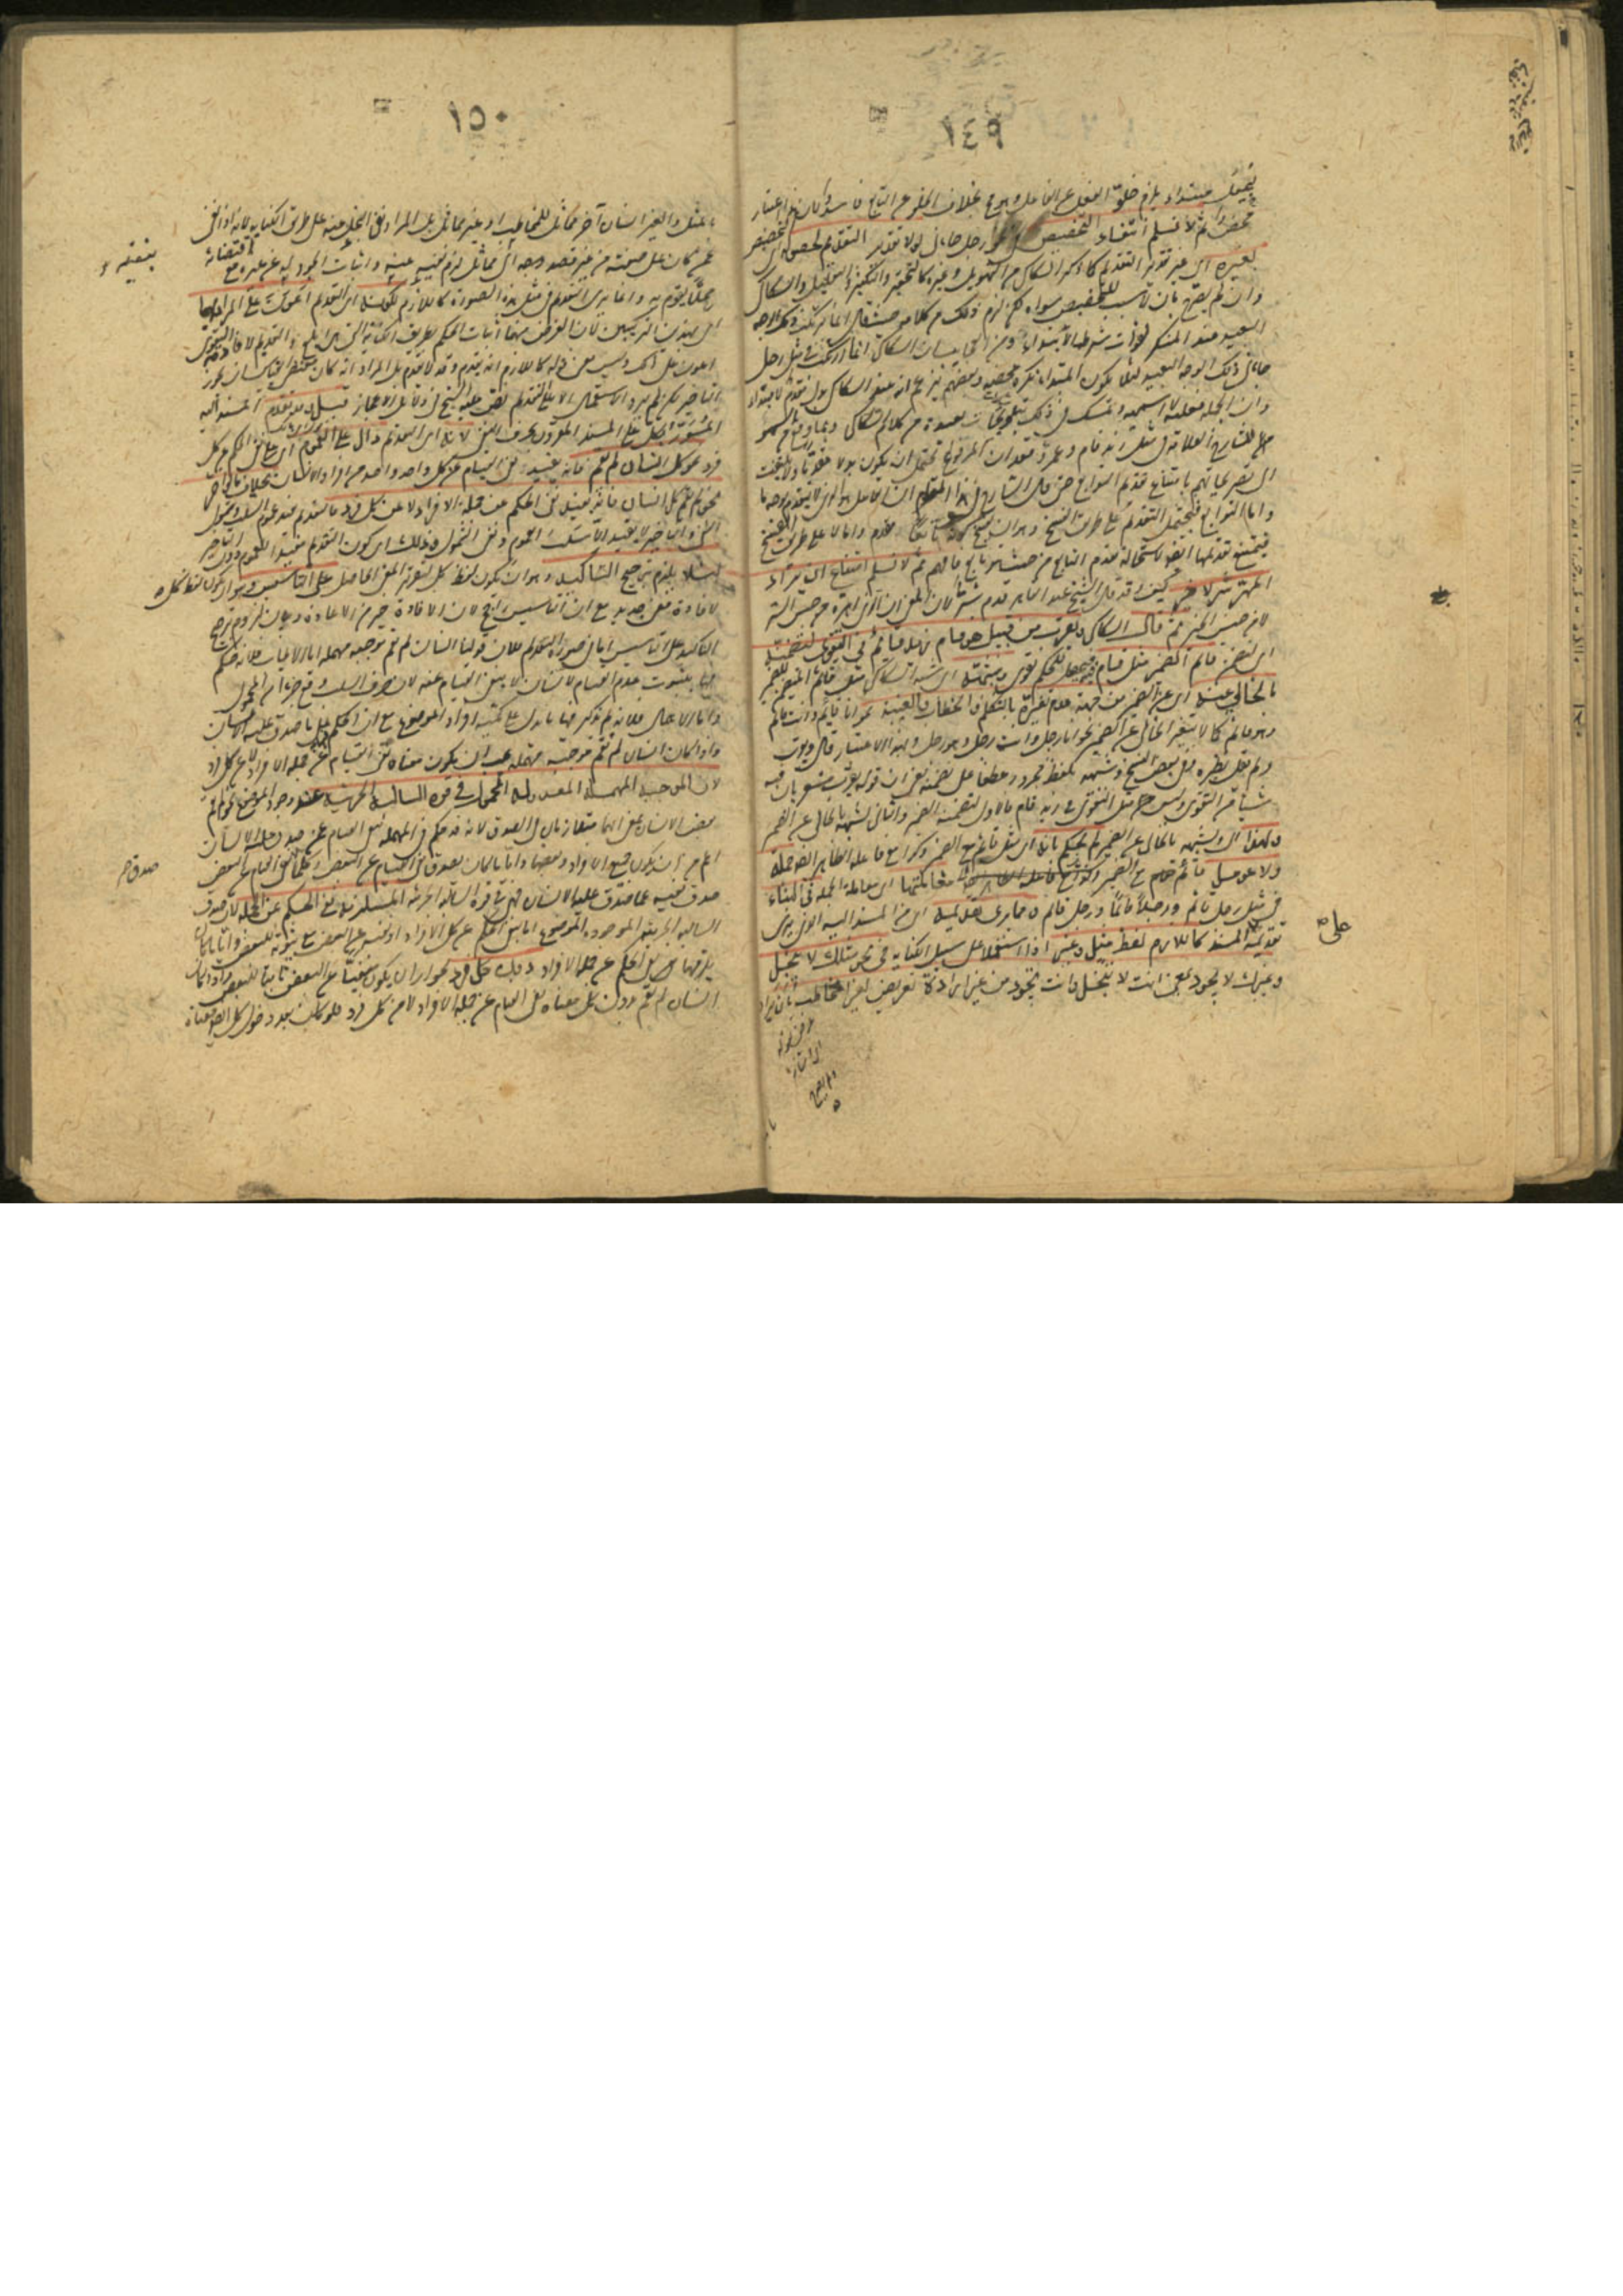 ١٤٩
فيجعل مبتدأ يلزم خلو الفعل عن الفاعل وهو مح بخلاف الخلو عن التابع فاسد لأن اعتبار
محض ثم لا نسلم انتفاء التخصيص في نحو رجل جاءني لولا تقدير التقديم لحصوله أي التخصيص
بغيره أي غير تقدير التقديم كما ذكره السكاكي من التهويل وغيره كالتحقير والتكثير والتقليل والسكاكي
وان لم يصرح بان لا سبب للتخصيص سواه لكن لزم ذلك من كلامه حيث قال انما يرتكب ذلك الوجه
البعيد عند المنكر لفوات شرط الابتداء ومن العجائب ان السكاكي انما ارتكب في مثل رجل
جاءني ذلك الوجه البعيد لئلا يكون المبتدأ نكرة محضة وبعضهم يزعم انه عند السكاكي بدل مقدم لا مبتدأ
وان الجملة فعلية لا اسمية ويتمسك في ذلك بتلويحات بعيدة من كلام السكاكي وبما وقع من السهو
للشارح العلامة في مثل زيد قام وعمرو قعد ان المرفوع يحتمل ان يكون بدلا مقدما ولا يلتفت
الى تصريحاتهم بامتناع تقديم التوابع حتى قال الشارح في هذا المقام ان الفاعل هو الذي لا يتقدم بوجه ما
واما التوابع فيحتمل التقديم على طريق الفسخ وهو ان يفسخ كونه تابعا ويقدم واما لا على طريق الفسخ
فيمتنع تقديمها ايضا لاستحالة تقدم التابع من حيث هو تابع فافهم ثم لا نسلم امتناع ان يراد
المهر شر لا خير كيف وقد قال الشيخ عبد القاهر قدم شر لان المعنى ان الذي اهره من جنس الشر
لا من جنس الخير ثم قال السكاكي ويقرب من قبيل هو قام زيد قائم في التقوي لتضمنه
اي لتضمن قائم الضمير مثل قام فيحصل للحكم تقوي وشبهه اي شبه السكاكي مثل قائم المتضمن للضمير
بالخالي عنه اي عن الضمير من جهة عدم تغيره بالتكلم والخطاب والغيبة نحو انا قائم وانت قائم
وهو قائم كما لا يتغير الخالي عن الضمير نحو انا رجل وانت رجل وهو رجل وبهذا الاعتبار قال ويقرب
ولم يقل نظيره وفي بعض النسخ وشبهه بلفظ مجرور عطفا على تضمنه يعني ان قوله يقرب مشعر بان فيه
شيئا من التقوي وليس مثل التقوي في زيد قام فالاول لتضمنه الضمير والثاني لشبهه بالخالي عن الضمير
ولهذا اي ولشبهه بالخالي عن الضمير لم يحكم بانه اي مثل قائم مع الضمير وكذا مع فاعله الظاهر ايضا جملة
ولا عومل قائم مع الضمير معاملتها اي معاملة الجملة في البناء
في مثل رجل قائم ورجلا قائما ورجل قائم ومما يرى تقديمه اي من المسند اليه الذي يرى
تقديمه على المسند كاللازم لفظ مثل وغير اذا استعملا على سبيل الكناية في نحو مثلك لا يبخل
وغيرك لا يجود بمعنى انت لا تبخل وانت تجود من غير ارادة تعريض لغير المخاطب بان يراد
على
١٥٠
بالمثل والغير انسان آخر مماثل للمخاطب او غير مماثل بل المراد نفي البخل عنه على طريق الكناية لانه اذا نفي
عمن كان على صفته من غير قصد الى مماثل لزم نفيه عنه واثبات الجود له بنفيه عن غيره مع اقتضائه
محلا يقوم به وانما يرى التقديم في مثل هذه الصورة كاللازم لكونه اي التقديم اعون على المراد بهما
اي بهذين التركيبين لان الغرض منهما اثبات الحكم بطريق الكناية التي هي ابلغ والتقديم لافادة التقوي
اعون على ذلك وليس معنى قوله كاللازم انه قد يقدم وقد لا يقدم بل المراد انه كان مقتضى القياس ان يجوز
التأخير لكن لم يرد الاستعمال الا على التقديم نص عليه الشيخ في دلائل الاعجاز قيل وقد يقدم المسند اليه
المسور بكل على المسند المقرون بحرف النفي لانه اي التقديم دال على العموم اي على نفي الحكم عن كل
فرد نحو كل انسان لم يقم فانه يفيد نفي القيام عن كل واحد واحد من افراد الانسان بخلاف ما لو اخر
نحو لم يقم كل انسان فانه يفيد نفي الحكم عن جملة الافراد لا عن كل فرد فالتقديم يفيد عموم السلب وشمول
النفي والتأخير لا يفيد الا سلب العموم ونفي الشمول وذلك اي كون التقديم مفيدا للعموم دون التأخير
لئلا يلزم ترجيح التأكيد وهو ان يكون لفظ كل لتقرير المعنى الحاصل على التأسيس وهو ان يكون لفظ كل
لافادة معنى جديد مع ان التأسيس راجح لان الافادة خير من الاعادة وبيان لزوم ترجيح
التأكيد على التأسيس اما في صورة التقديم فلان قولنا انسان لم يقم موجبة مهملة اما الايجاب فلانه حكم
فيها بثبوت عدم القيام لانسان لا بنفي القيام عنه لان حرف السلب وقع جزءا من المحمول
واما الاهمال فلانه لم يذكر فيها ما يدل على كمية افراد الموضوع مع ان الحكم على ما صدق عليه الانسان
واذا كان انسان لم يقم موجبة مهملة يجب ان يكون معناه نفي القيام عن جملة الافراد لا عن كل فرد
لان الموجبة المهملة المعدولة المحمول في قوة السالبة الجزئية عند وجود الموضوع نحو لم يقم
بعض الانسان بمعنى انهما متلازمان في الصدق لانه قد حكم في المهملة بنفي القيام عن ما صدق عليه الانسان
اعم من ان يكون جميع الافراد او بعضها وايا ما كان يصدق نفي القيام عن البعض وكلما صدق نفي القيام عن البعض
صدق نفيه عما صدق عليه الانسان فهي في قوة السالبة الجزئية المستلزمة نفي الحكم عن الجملة لان صدق
السالبة الجزئية الموجودة الموضوع اما بنفي الحكم عن كل الافراد او نفيه عن البعض مع ثبوته للبعض وايا ما كان
يلزمها نفي الحكم عن جملة الافراد دون كل فرد لجواز ان يكون منفيا عن البعض ثابتا للبعض واذا كان
انسان لم يقم بدون كل معناه نفي القيام عن جملة الافراد لا عن كل فرد فلو كان بعد دخول كل ايضا معناه